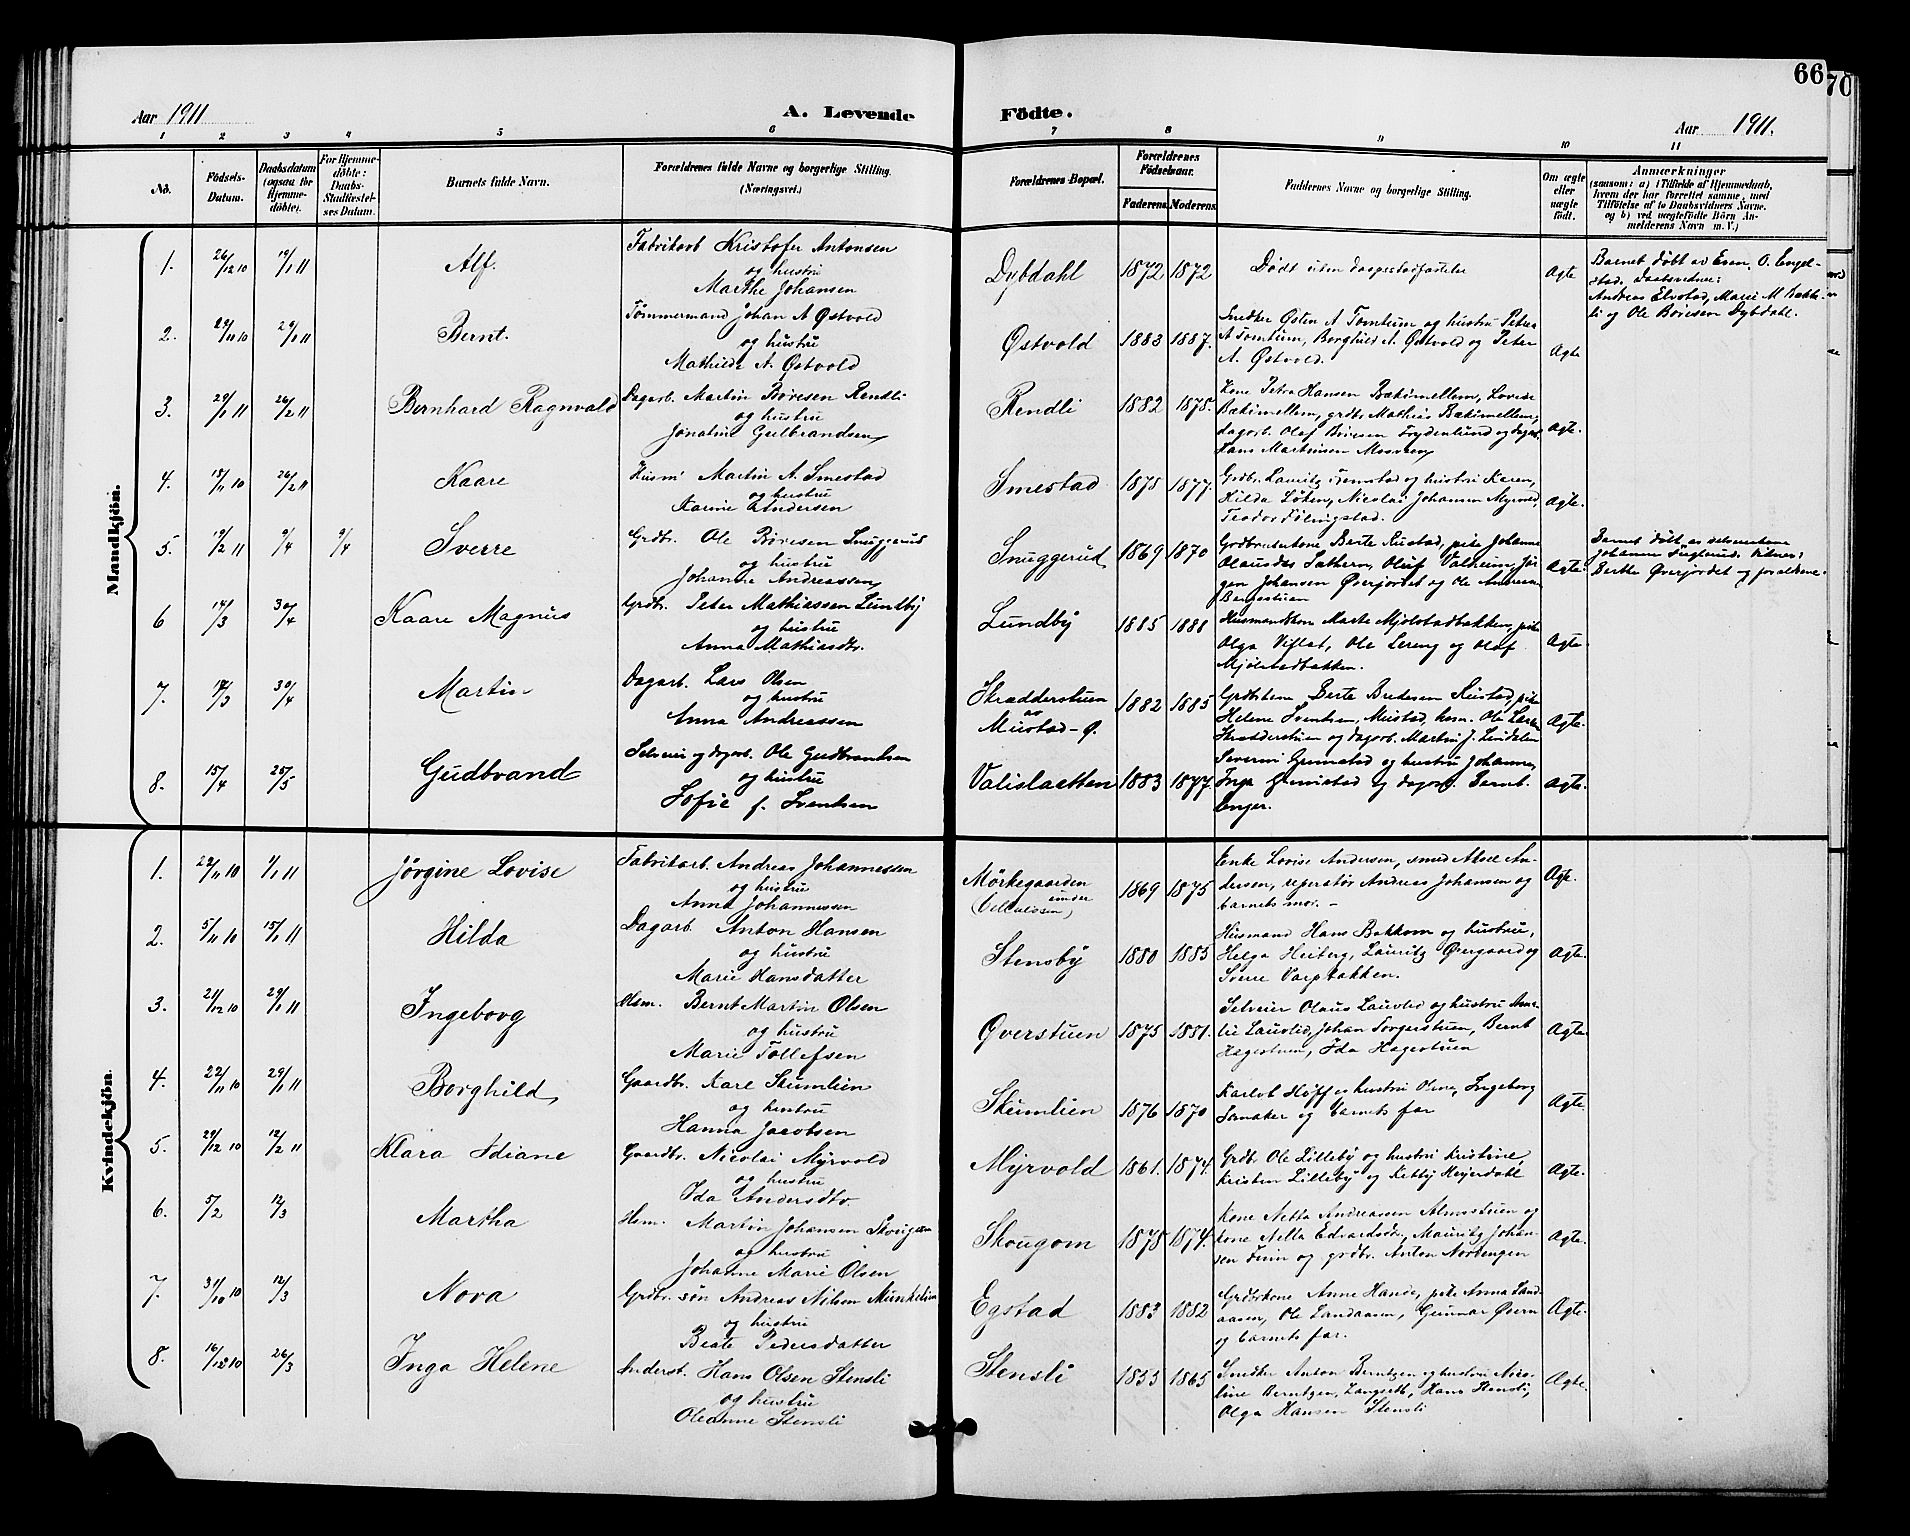 66
70
Aar 1911
A. Levende
Födte.
Aar 1911.
1 2 3 4 5 6 7 8 9 10 11
No.
Födsels-
Datum.
Daabsdatum
(ogsaa for
Hjemme-
döbte).
For Hjemme-
döbte:
Daabs-
Stadfæstel-
ses Datum.
Barnets fulde Navn.
Forældrenes fulde Navne og borgerlige Stilling.
(Næringsvei.)
Forældrenes Bopæl.
Forældrenes
Födselsaar.
Faderens. Moderens.
Faddernes Navne og borgerlige Stilling.
Om ægte
eller
uægte
födt.
Anmærkninger
(saasom: a) i Tilfælde af Hjemmedaab,
hvem der har forrettet samme, med
Tilföielse af to Daabsvidners Navne,
og b) ved uægtefödte Börn An-
melderens Navn m. V.)
Mandkjön.
1. 26/12 10 19/1 11 Alf.
Fabrikarb Kristofer Antonsen
og hustru
Marthe Johansen
Dybdahl 1872 1872
Dødt uten daapsstadfæstelse
Ægte
Barnet døbt av Even. O. Engel-
stad. Daabsvidner:
Andreas Elvstad, Marie M Bakke-
li og Ole Børesen Dybdahl.
2. 29/11 10 29/1 11 Bernt.
Tømmermand Johan A Østvold
og hustru
Mathilde A. Østvold
Østvold 1883 1887.
Snedker Østen A Tomtum og hustru Petra
A Tomtum, Borghild A. Østvold og Peter
A. Østvold.
Ægte
3. 29/1 11 26/2 11 Bernhard Ragnvald
Dagarb. Martin Børesen Rendli
og hustru
Jonatine Gulbrandsen
Rendli 1882 1878.
Kone Petra Hansen Bækimellem, Lovise
Bækimellem, grdbr. Mathias Bækimellem,
dagarb. Olaf Børesen Frydenlund og dagarb.
Hans Martinsen
Ægte.
4. 18/11 10 26/2 11 Kaare
Husm Martin A. Smestad
og hustru
Karine Andersen
Smestad 1878 1877.
Grdbr. Lauritz Tømstad og hustru Karen,
Hilda Løken, Nicolai Johansen Myrvold,
Teodor Følingstad.
Ægte.
5. 19/2 11 9/4 9/4 Sverre
Grdbr. Ole Børesen Snuggerud
og hustru
Johanne Andreassen
Snuggerud 1869 1870
Grdbrukerkone Berte Rustad, pike Johanne
Olausdas Sæthern, Oluf Valheim, Jør-
gen Johansen Øverjordet og Ole Andreas
Bergestuen
Ægte.
Barnet døbt av
Johanne Fuglerud. Vitner:
Berthe Øverjordet og forældrene.
6 14/3 30/4 Kaare Magnus
Grdbr. Peter Mathiassen Lundby
og hustru
Anna Mathiasdtr.
Lundby 1885 1888
Husmandskone Marte Mjølstadbakken, pike
Olga Viflat, Ole Lereng og Olaf
Mjølstadbakken.
Ægte.
7. 12/3 30/4 Martin
Dagarb. Lars Olsen
og hustru
Anna Andreassen
Skrædderstuen
av
Mustad-Ø.
1882 1885
Grdbrkone Berte Bredesen Rustad, pike
Helene Svensen, Mustad, husm. Ole Larsen
Skrædderstuen og dagarb. Martin J. Lindalen
Ægte.
8. 15/4 25/5 Gudbrand
Selveier og dagarb. Ole Gudbrandsen
og hustru
Sofie f. Svensen
Valislaatten 1883 1877.
Severin Grimstad og hustru Johanne,
Inga Grimstad og dagarb. Bernt
Enger.
Ægte.
Kvindekjön.
1. 22/11 10 1/1 11 Jørgine Lovise
Fabrikarb. Andreas Johannessen
og hustru
Anna Johannessen
Mørkegaarden
under
1869 1875
Enke Lovise Andersen, smed Aksel An-
dersen, reperatør Andreas Johansen og
barnets mor. -
Ægte.
2. 5/11 10 15/1 11 Hilda
Dagarb Anton Hansen
og hustru
Marie Hansdatter
Stensby 1880 1885
Husmand Hans Bakkom og hustru,
Helga Heiberg, Lauritz Øvergaard og
Sverre Vargbakken.
Ægte.
3. 21/12 10 29/1 11 Ingeborg
Hsm. Bernt Martin Olsen
og hustru
Marie Tollefsen
Øverstuen 1875 1881.
Selveier Olaus Lauvlid og hustru Ama-
lie Lauvlid, Johan Torgerstuen, Bernt
Hagestuen, Ida Hagestuen
Ægte.
4. 22/11 10 29/1 11 Borghild
Gaardbr. Karl Skumlien
og hustru
Hanna Jacobsen
Skumlien 1876 1870
Karlot Høff og hustru Oline, Ingeborg
Semaker og barnets far
Ægte.
5. 29/12 10 12/2 11 Klara Idiane
Gaardbr. Nicolai Myrvold
og hustru
Ida Andersdtr
Myrvold 1861. 1874.
Grdbr. Ole Lilleby og hustru Kristine,
Kristen Lilleby og Kitty Heyerdahl
Ægte.
6. 5/2 12/3 Martha
Hsm. Martin Johansen Skougom
og hustru
Johanne Marie Olsen
Skougom 1878 1874.
Kone Netta Andreassen Almsstuen og
kone Nella Edvardsdtr, Mauritz Johan-
sen Tuun og grdbr. Anton Nordengen
Ægte.
7. 31/10 10 12/3 Nora
Grdbr. søn Andreas Nilsen Munkelien
og hustru
Beate Pedersdatter
Egstad 1883 1882
Grdbrkone Anne Hande, pike Anna Land-
aasen, Ole Landaasen, Gunnar Øvern
og barnets far.
Ægte.
8. 16/12 10 26/3 Inga Helene
Inderst. Hans Olsen Stensli
og hustru
Oleanne Stensli
Stensli 1855 1865
Snedker Anton Berntzen og hustru Nico-
line Berntzen, Langsett, Hans Stensli,
Olga Hansen Stensli
Ægte.